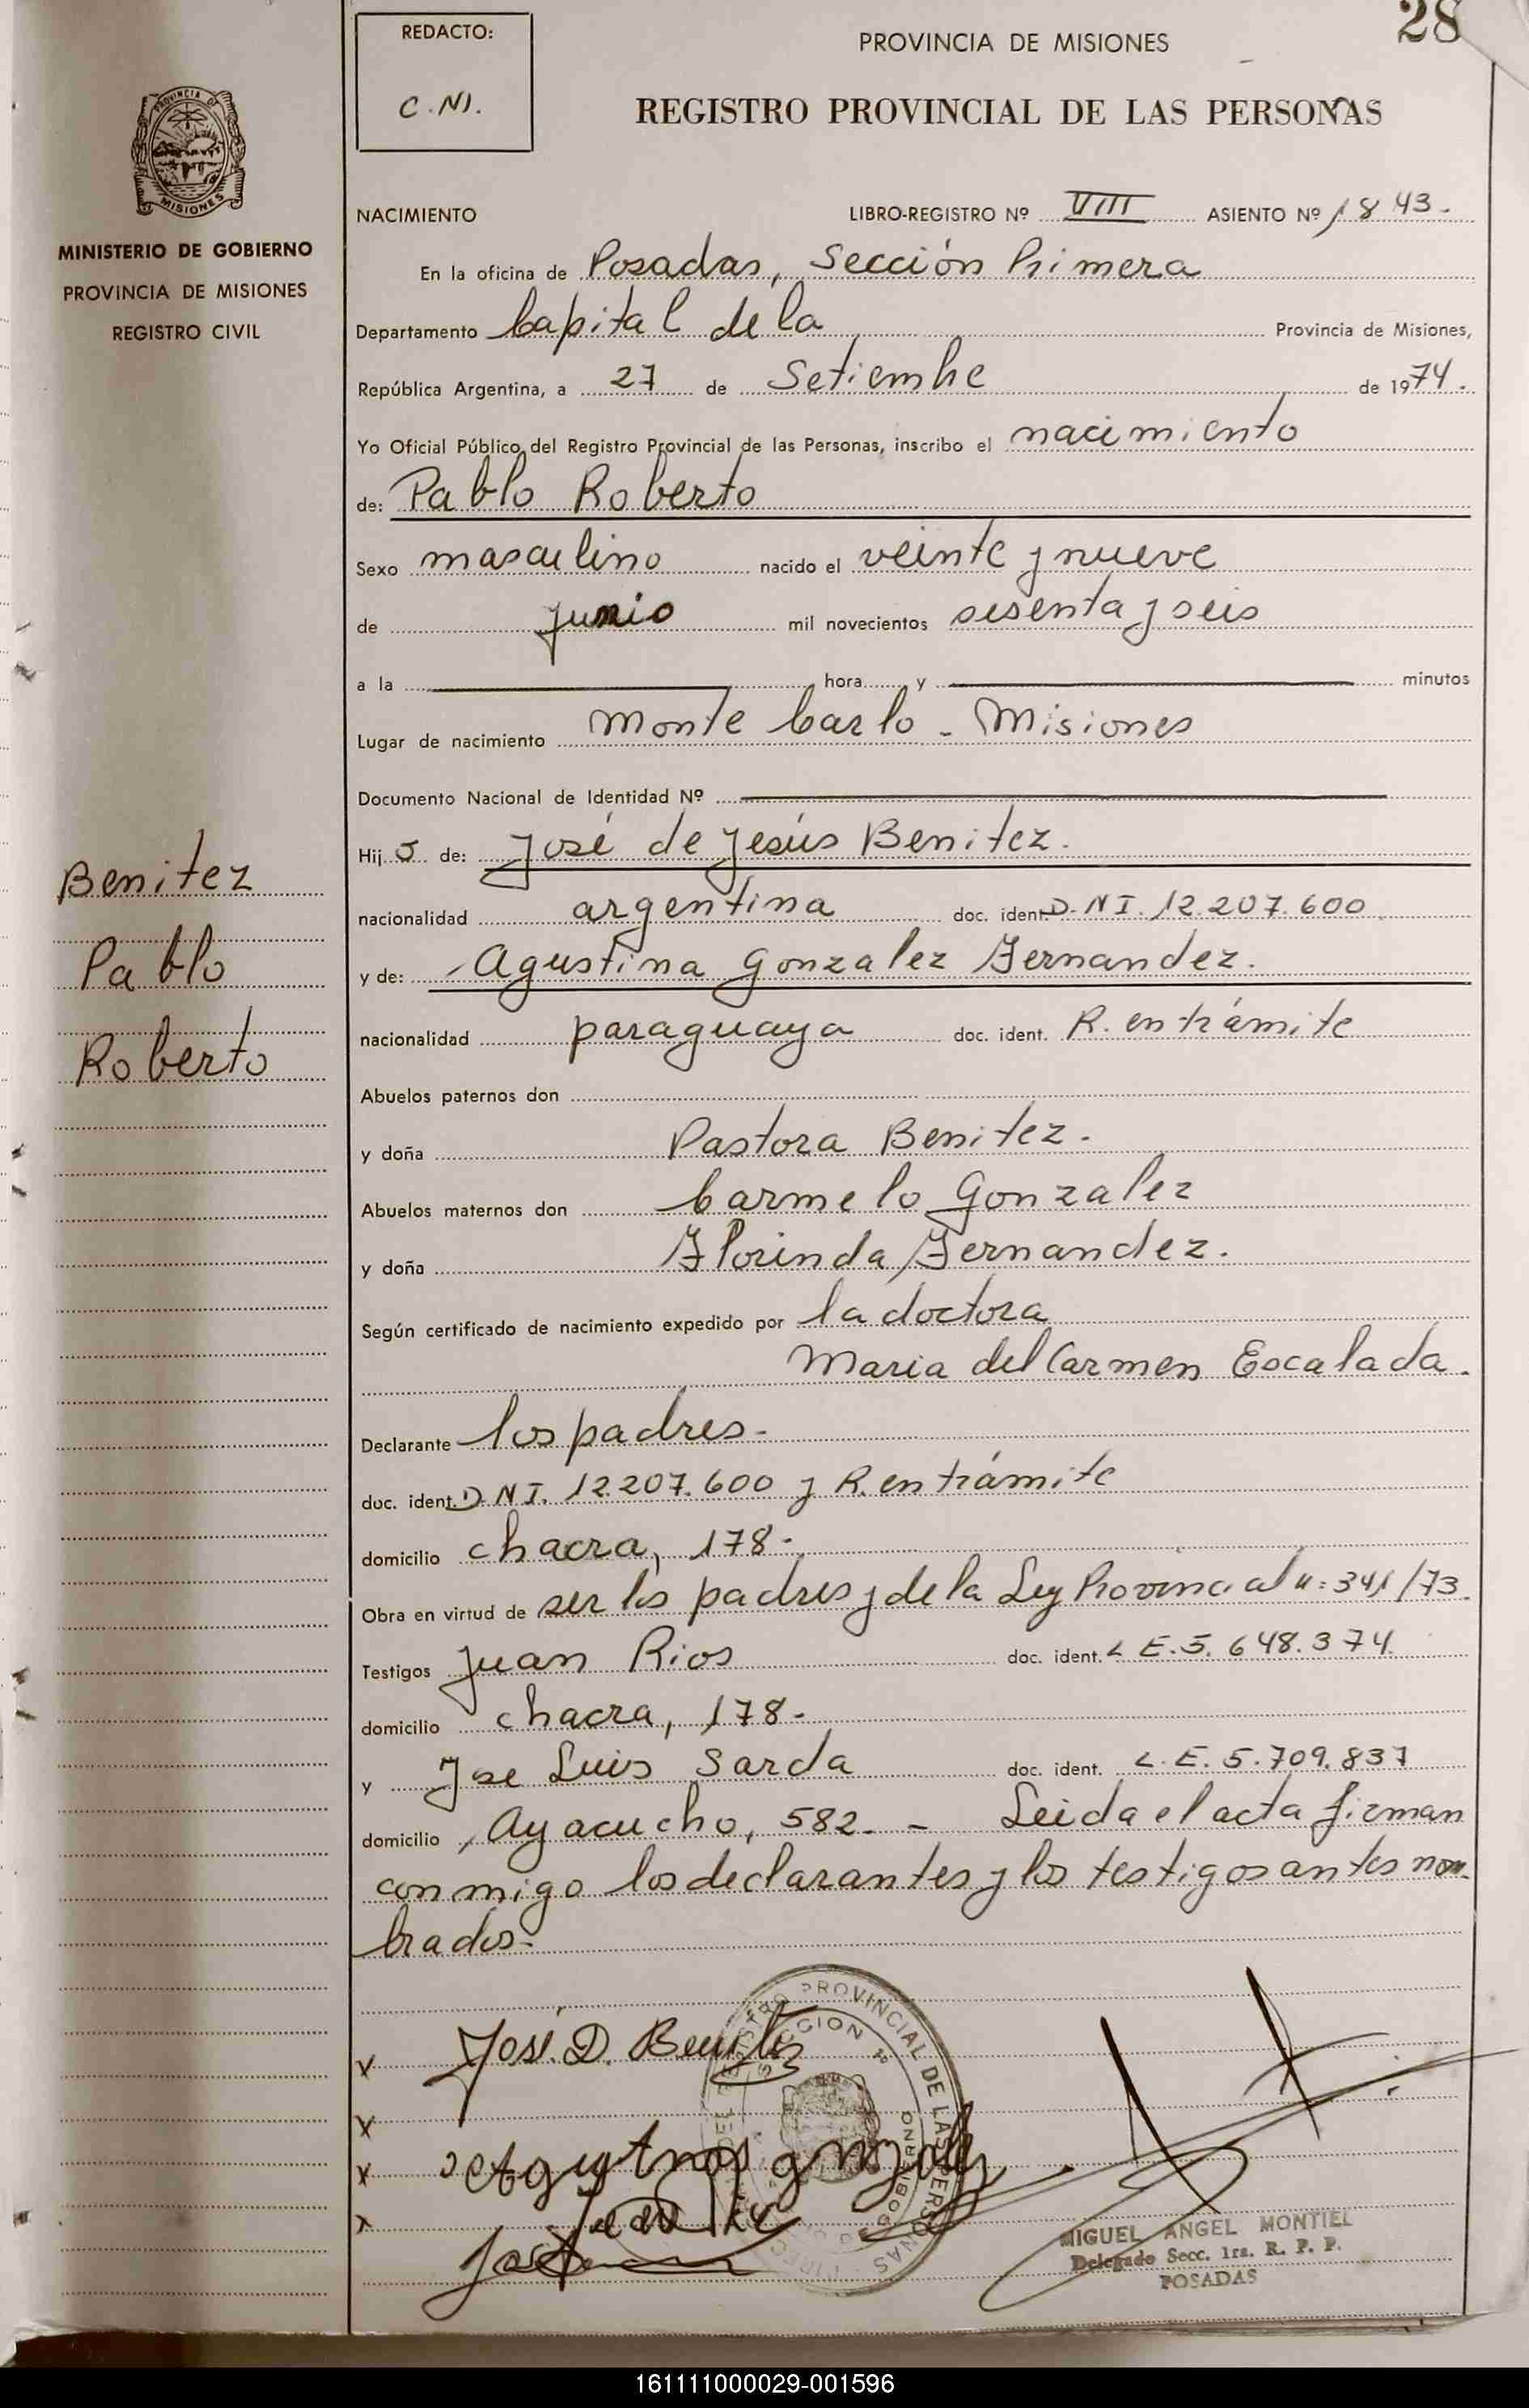 28
REDACTO:
C.NI.
PROVINCIA DE MISIONES
REGISTRO PROVINCIAL DE LAS PERSONAS
PROVINCIA DE
MISIONES
MINISTERIO DE GOBIERNO
PROVINCIA DE MISIONES
REGISTRO CIVIL
NACIMIENTO LIBRO-REGISTRO Nº VIII ASIENTO Nº 1843.
En la oficina de Posadas, Sección Primera
Departamento Capital de la Provincia de Misiones,
República Argentina, a 27 de Setiembre de 1974.
Yo Oficial Público del Registro Provincial de las Personas, inscribo el nacimiento
de: Pablo Roberto
Sexo masculino nacido el veinte y nueve
de junio mil novecientos sesenta y seis
a la hora y minutos
Lugar de nacimiento Monte Carlo - Misiones
Documento Nacional de Identidad Nº
Hijo de: José de Jesús Benitez.
nacionalidad argentina doc. ident. D.N I. 12.207.600
y de: Agustina Gonzalez Fernandez.
nacionalidad paraguaya doc. ident. R. en trámite
Benitez
Pablo
Roberto
Abuelos paternos don
y doña Pastora Benitez.
Abuelos maternos don Carmelo Gonzalez
y doña Florinda Fernandez.
Según certificado de nacimiento expedido por la doctora
Maria del Carmen Escalada.
Declarante los padres-
doc. ident. D.N I. 12.207.600 y R. en trámite
domicilio chacra, 178-
Obra en virtud de ser los padres y de la Ley Provincial n: 341/73.
Testigos Juan Rios doc. ident. L E.5.648.374.
domicilio chacra, 178-
y Jose Luis Sarda doc. ident. L.E.5.709.837
domicilio Ayacucho, 582. - Leida el acta firman
conmigo los declarantes y los testigos antes nom
brados-
X José. D. Benitez
X
X Agustina gonzalez
X
REGISTRO PROVINCIAL DE LAS PERSONAS
SECCION 1ª
GOBIERNO
MIGUEL ANGEL MONTIEL
Delegado Secc. 1ra. R. P. P.
POSADAS
161111000029-001596